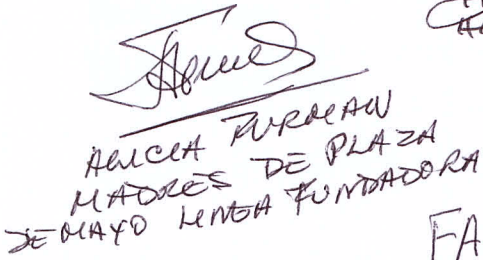 ALICIA FURMAN
MADRES DE PLAZA
DE MAYO LINEA FUNDADORA
FA